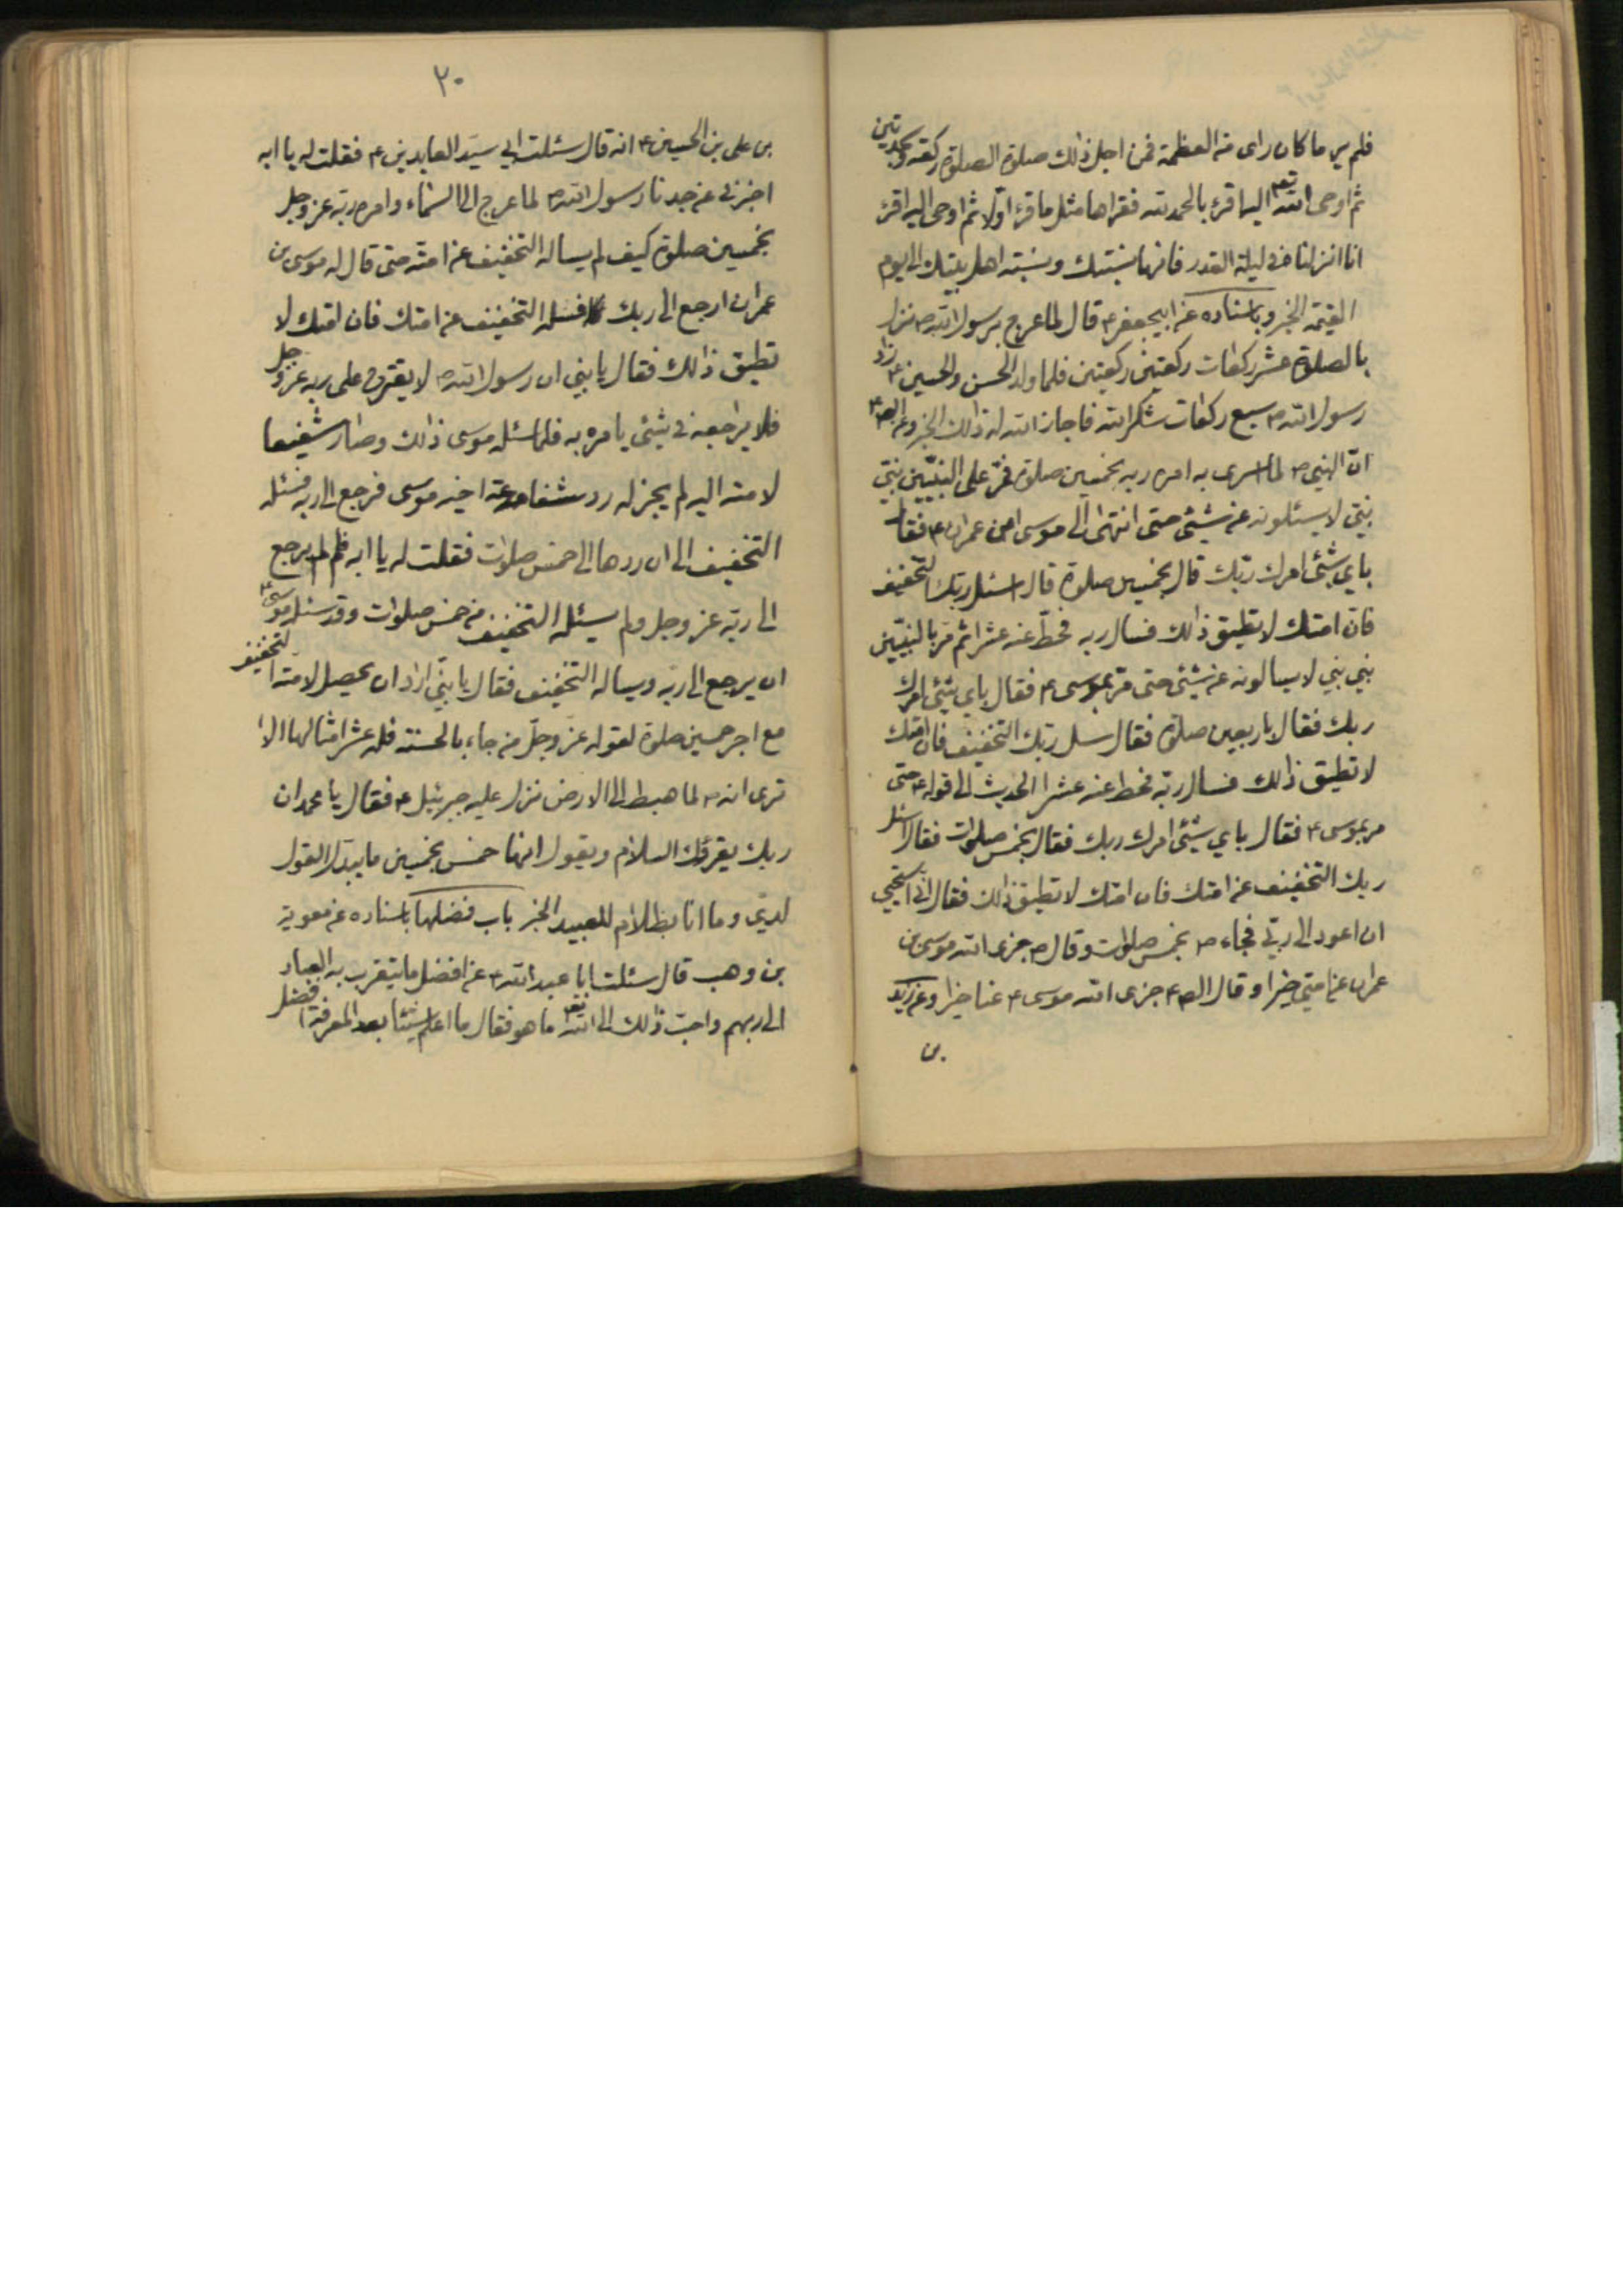 فلم ير ما كان راى من العظمة فمن اجل ذالك صلوة الصلوة ركعة وسجدتين
ثم اوحى الله تع اليه اقرء بالحمد لله فقراها مثل ما قرء اولا ثم اوحى اليه اقرء
انا انزلناه في ليلة القدر فانها نسبتك ونسبة اهل بيتك الى يوم
القيمة الخبر وباسناده عن ابيجعفر ع قال لما عرج برسول الله ص نزل
بالصلوة عشر ركعات ركعتين ركعتين فلما ولد الحسن والحسين ع زاد
رسول الله ص سبع ركعات شكرا لله فاجاز الله له ذالك الخبر وعن الص ع
ان النبي ص لما اسرى به امره ربه بخمسين صلوة فمر على النبيين نبي
نبي لا يسئلونه عن شيئ حتى انتهى الى موسى ابن عمران ع فقال
باي شيئ امرك ربك قال بخمسين صلوة قال اسئل ربك التخفيف
فان امتك لا تطيق ذالك فسال ربه فحط عنه عشرا ثم مر بالنبيين
نبي نبي لا يسالونه عن شيئ حتى مر بموسى ع فقال باي شيئ امرك
ربك فقال باربعين صلوة فقال سل ربك التخفيف فان امتك
لا تطيق ذالك فسال ربه فحط عنه عشرا الحديث الى قوله ع حتى
مر بموسى ع فقال باي شيئ امرك ربك فقال بخمس صلوات فقال اسئل
ربك التخفيف عن امتك فان امتك لا تطيق ذالك فقال اني استحيي
ان اعود الى ربي فجاء ص بخمس صلوات وقال ص جزى الله موسى بن
عمران عن امتي خيرا وقال الص ع جزى الله موسى ع عنا خيرا وعن زيد
بن
٢٠
بن علي بن الحسين ع انه قال سئلت ابي سيد العابدين ع فقلت له يا ابه
اخبرني عن جدنا رسول الله ص لما عرج الى السماء وامره ربه عز وجل
بخمسين صلوة كيف لم يساله التخفيف عن امته حتى قال له موسى بن
عمران ارجع الى ربك فسله التخفيف عن امتك فان امتك لا
تطيق ذالك فقال يا بني ان رسول الله ص لا يقترح على ربه عز وجل
فلا يراجعه في شيئ يامره به فلما سئله موسى ذالك وصار شفيعا
لامته اليه لم يجز له رد شفاعة اخيه موسى فرجع الى ربه فسئله
التخفيف الى ان ردها الى خمس صلوات فقلت له يا ابه فلم لم يرجع
الى ربه عز وجل ولم يسئله التخفيف من خمس صلوات وقد سئله موسى ع
ان يرجع الى ربه ويساله التخفيف فقال يا بني اراد ان يحصل لامته التخفيف
مع اجر خمسين صلوة لقوله عز وجل من جاء بالحسنة فله عشر امثالها الا
ترى انه ص لما هبط الى الارض نزل عليه جبرئيل ع فقال يا محمد ان
ربك يقرئك السلام ويقول انها خمس بخمسين ما يبدل القول
لدي وما انا بظلام للعبيد الخبر باب فضلها باسناده عن معوية
بن وهب قال سئلت ابا عبد الله ع عن افضل ما يتقرب به العباد
الى ربهم واحب ذالك الى الله تع ما هو فقال ما اعلم شيئا بعد المعرفة افضل